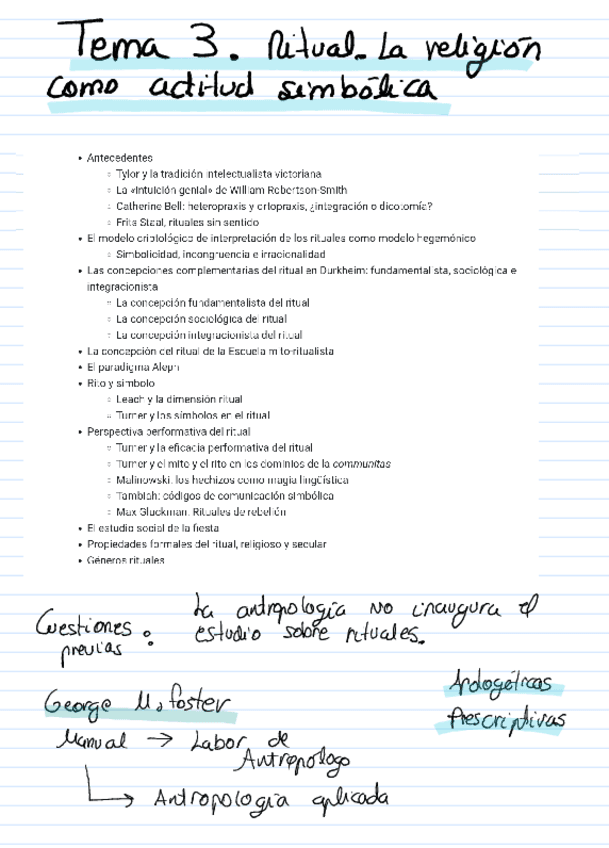 Tema 3. Ritual. La religión
como actitud simbólica
• Antecedentes
◦ Tylor y la tradición intelectualista victoriana
◦ La «intuición genial» de William Robertson-Smith
◦ Catherine Bell: heteropraxis y ortopraxis, ¿integración o dicotomía?
◦ Frits Staal, rituales sin sentido
• El modelo criptológico de interpretación de los rituales como modelo hegemónico
◦ Simbolicidad, incongruencia e irracionalidad
• Las concepciones complementarias del ritual en Durkheim: fundamentalista, sociológica e
integracionista
◦ La concepción fundamentalista del ritual
◦ La concepción sociológica del ritual
◦ La concepción integracionista del ritual
• La concepción del ritual de la Escuela mito-ritualista
• El paradigma Aleph
• Rito y símbolo
◦ Leach y la dimensión ritual
◦ Turner y los símbolos en el ritual
• Perspectiva performativa del ritual
◦ Turner y la eficacia performativa del ritual
◦ Turner y el mito y el rito en los dominios de la communitas
◦ Malinowski: los hechizos como magia lingüística
◦ Tambiah: códigos de comunicación simbólica
◦ Max Gluckman: Rituales de rebelión
• El estudio social de la fiesta
• Propiedades formales del ritual, religioso y secular
• Géneros rituales
Cuestiones previas:
La antropología no inaugura el
estudio sobre rituales.
George M. Foster
Manual → Labor de
Antropólogo
→ Antropología aplicada
Apologéticas
Prescriptivas